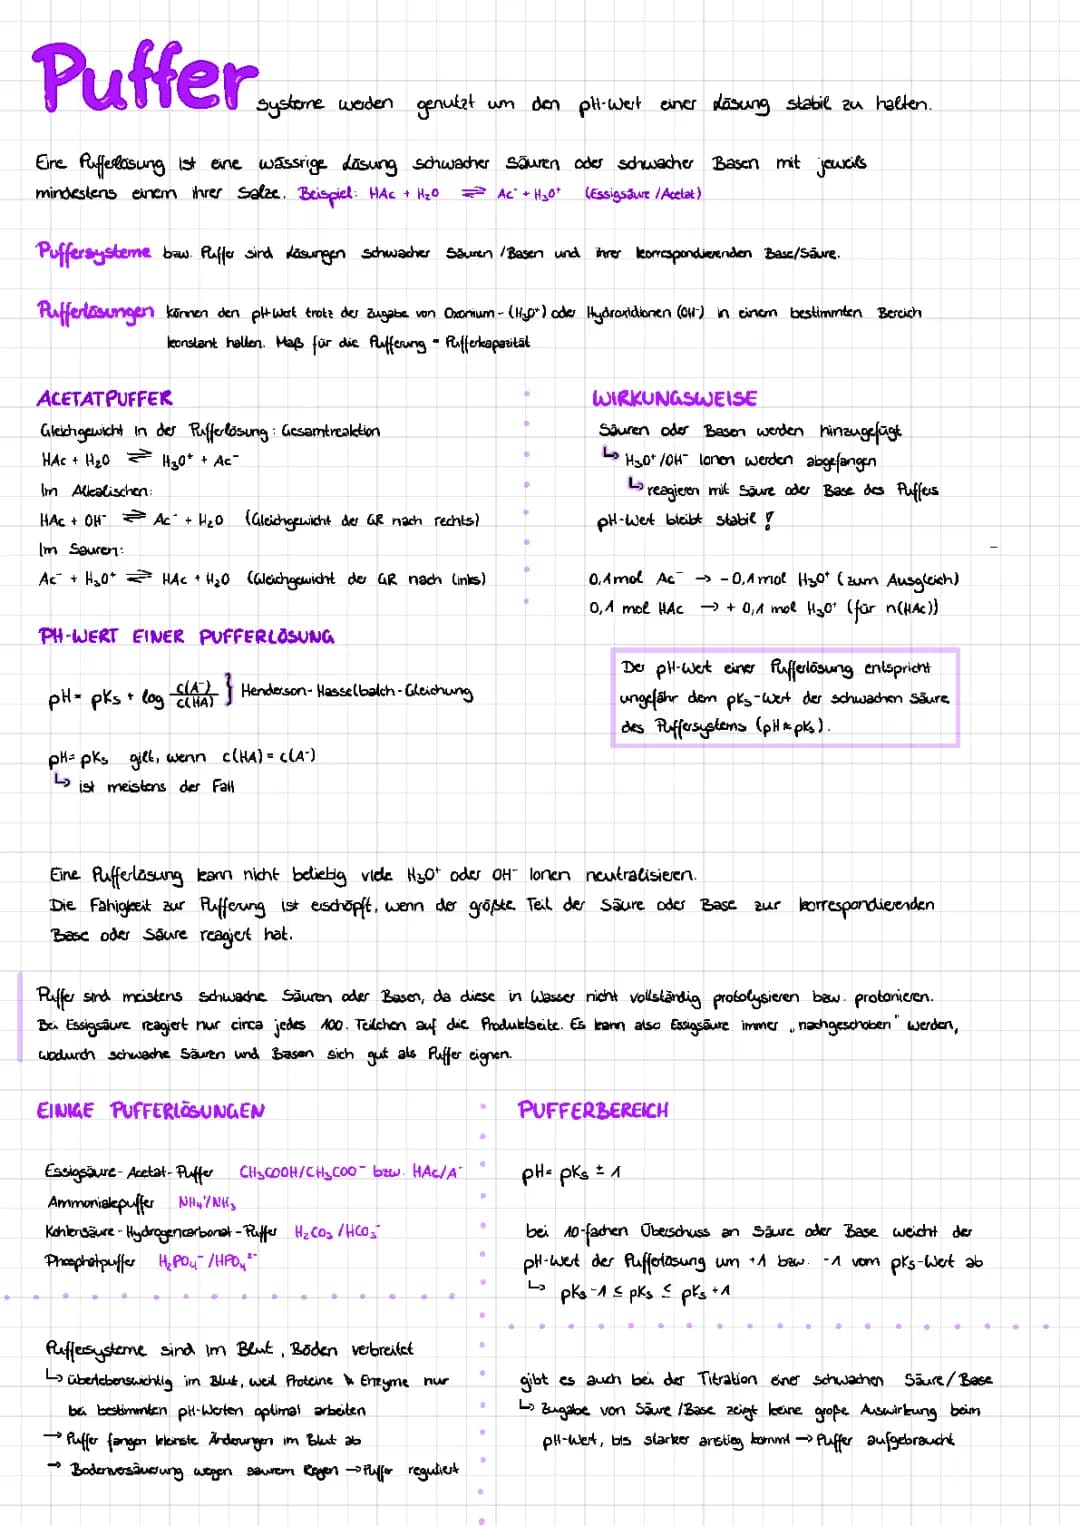 Puffer systeme werden genutzt um den pH-Wert einer Lösung stabil zu halten.
Eine Pufferlösung ist eine wässrige Lösung schwacher Säuren oder schwacher Basen mit jeweils
mindestens einem ihrer Salze. Beispiel: HAc + H₂O ⇌ Ac⁻ + H₃O⁺ (Essigsäure / Acetat)
Puffersysteme bzw. Puffer sind Lösungen schwacher Säuren / Basen und ihrer korrespondierenden Base/Säure.
Pufferlösungen können den pH-Wert trotz der Zugabe von Oxonium-(H₃O⁺) oder Hydroxidionen (OH⁻) in einem bestimmten Bereich
konstant halten. Maß für die Pufferung = Pufferkapazität
ACETATPUFFER
Gleichgewicht in der Pufferlösung: Gesamtreaktion
HAc + H₂O ⇌ H₃O⁺ + Ac⁻
Im Alkalischen:
HAc + OH⁻ ⇌ Ac⁻ + H₂O (Gleichgewicht der GR nach rechts)
Im Sauren:
Ac⁻ + H₃O⁺ ⇌ HAc + H₂O (Gleichgewicht der GR nach links)
WIRKUNGSWEISE
Säuren oder Basen werden hinzugefügt
↳ H₃O⁺/OH⁻ Ionen werden abgefangen
↳ reagieren mit Säure oder Base des Puffers
pH-Wert bleibt stabil !
0,1 mol Ac⁻ → - 0,1 mol H₃O⁺ (zum Ausgleich)
0,1 mol HAc → + 0,1 mol H₃O⁺ (für n(HAc))
PH-WERT EINER PUFFERLÖSUNG
pH = pKs + log c(A⁻)/c(HA) } Henderson-Hasselbalch-Gleichung
pH = pKs gilt, wenn c(HA) = c(A⁻)
↳ ist meistens der Fall
Der pH-Wert einer Pufferlösung entspricht
ungefähr dem pKs-Wert der schwachen Säure
des Puffersystems (pH ≈ pKs).
Eine Pufferlösung kann nicht beliebig viele H₃O⁺ oder OH⁻ Ionen neutralisieren.
Die Fähigkeit zur Pufferung ist erschöpft, wenn der größte Teil der Säure oder Base zur korrespondierenden
Base oder Säure reagiert hat.
Puffer sind meistens schwache Säuren oder Basen, da diese in Wasser nicht vollständig protolysieren bzw. protonieren.
Bei Essigsäure reagiert nur circa jedes 100. Teilchen auf die Produktseite. Es kann also Essigsäure immer „nachgeschoben" werden,
wodurch schwache Säuren und Basen sich gut als Puffer eignen.
EINIGE PUFFERLÖSUNGEN
Essigsäure-Acetat-Puffer CH₃COOH/CH₃COO⁻ bzw. HAc/A⁻
Ammoniakpuffer NH₄⁺/NH₃
Kohlensäure-Hydrogencarbonat-Puffer H₂CO₃ /HCO₃⁻
Phosphatpuffer H₂PO₄⁻ /HPO₄²⁻
PUFFERBEREICH
pH = pKs ± 1
bei 10-fachen Überschuss an Säure oder Base weicht der
pH-Wert der Pufferlösung um +1 bzw. -1 vom pKs-Wert ab
↳ pKs -1 ≤ pKs ≤ pKs +1
Puffersysteme sind im Blut, Böden verbreitet
↳ überlebenswichtig im Blut, weil Proteine & Enzyme nur
bei bestimmten pH-Werten optimal arbeiten
→ Puffer fangen kleinste Änderungen im Blut ab
→ Bodenversäuerung wegen saurem Regen → Puffer reguliert
gibt es auch bei der Titration einer schwachen Säure/Base
↳ Zugabe von Säure /Base zeigt keine große Auswirkung beim
pH-Wert, bis starker anstieg kommt → Puffer aufgebraucht